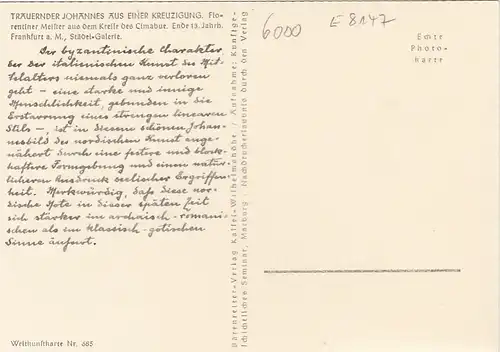 TRAUERNDER JOHANNES AUS EINER KREUZIGUNG. Flo-
rentiner Meister aus dem Kreise des Cimabue. Ende 13. Jahrh.
Frankfurt a. M., Städel-Galerie.
Der byzantinische Charakter
der der italienischen Kunst des Mit-
telalters niemals ganz verloren
geht – eine starke und innige
Menschlichkeit, gebunden in die
Erstarrung eines strengen linearen
Stils –, ist in diesem schönen Johan-
nesbild der nordischen Kunst ange-
nähert durch eine festere und block-
haftere Formgebung und einen natür-
licheren Ausdruck seelischer Ergriffen-
heit. Merkwürdig, daß diese nor-
dische Note in dieser späten Zeit
sich stärker im archaisch-romani-
schen als im klassisch-gotischen
Sinne äußert.
Weltkunstkarte Nr. 665
Bärenreiter-Verlag Kassel-Wilhelmshöhe / Aufnahme: Kunstge-
schichtliches Seminar, Marburg / Nachdruckerlaubnis durch den Verlag
6000
E 8147
Echte
Photo-
karte